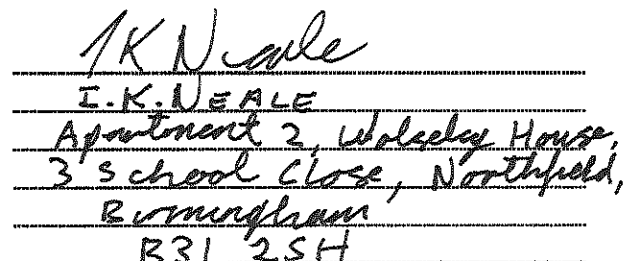 I K Neale
I.K. NEALE
Apartment 2, Wolseley House,
3 School Close, Northfield,
Birmingham
B31 2SH